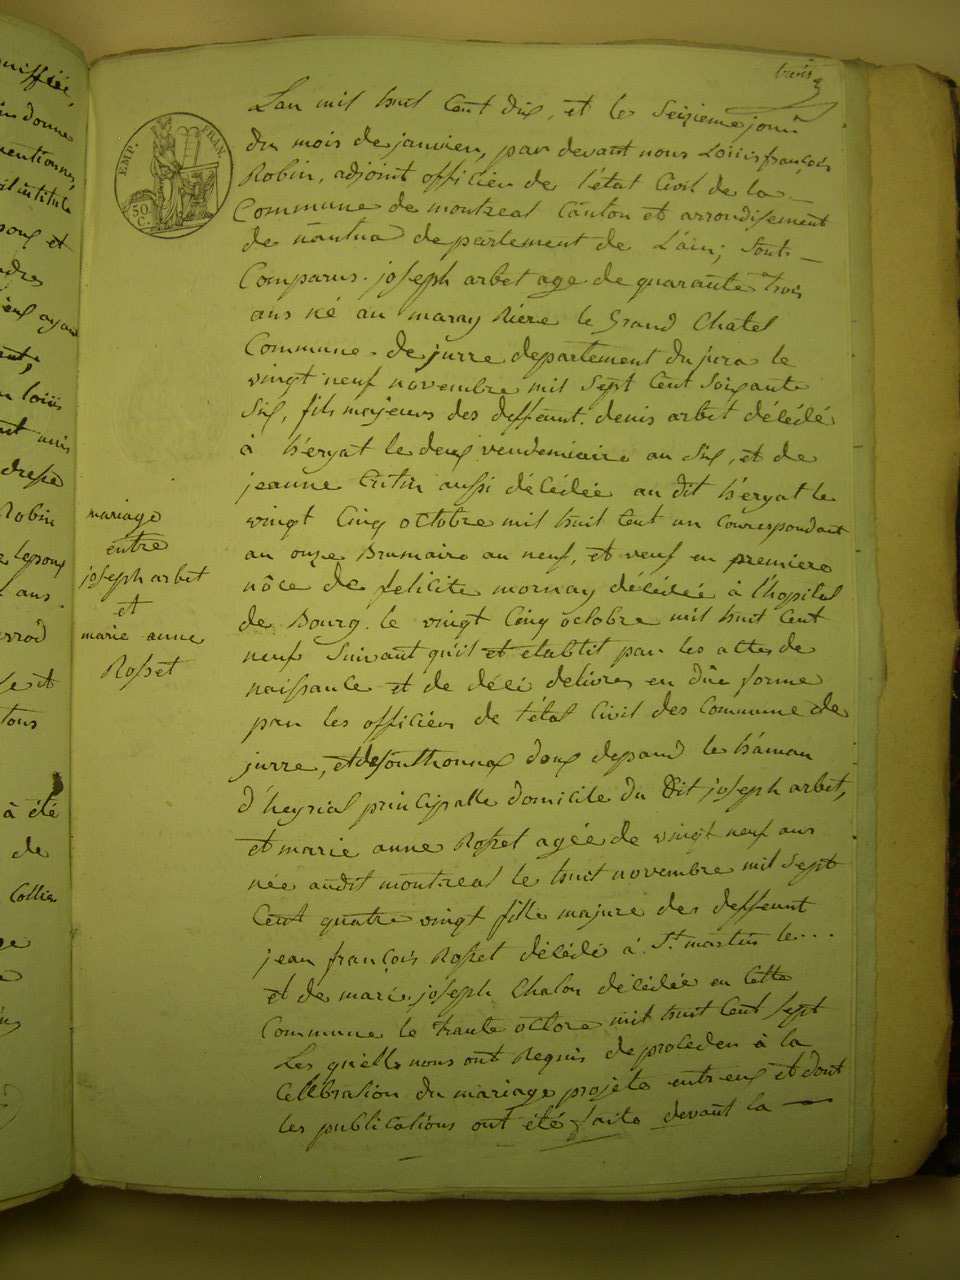 trois
EMP. FRAN.
50 C.
Lan mil huit Cent dix, et le Seizieme jour
du mois de janvier, par devant nous Loüis françois
Robin, adjoint officier de l'état Civil de la
Commune de montreal Canton et arrondisement
de nantua departement de L'ain; Sont
Comparus. joseph arbet age de quarante trois
ans né au maray Riere le Grand Chatel
Commune de jurre departement du jura le
vingt neuf novembre mil Sept Cent Soixante
Six, fils majeurs des deffeunt. denis arbet décédé
à h'eryat le deux vendemiaire an Six, et de
jeanne aussi décédée au dit h'eryat le
vingt Cinq octobre mil huit Cent un Courrespondant
au onze Brumaire an neuf, et veuf en premiere
nôce de felicite mornay décédée à l'hopital
de Bourg. le vingt Cinq octobre mil huit Cent
neuf Suivant qu'il et etablit par les actes de
naissance et de décé delivres en dûe forme
par les officier de l'état Civil des Commune de
jurre, et de Sonthonnax doux depand le hámau
d'heyriat principalle domicile du Dit joseph arbet,
et marie anne Rosset agée de vingt neuf ans
née audit montreal le huit novembre mil Sept
Cent quatre vingt fille majure des deffeunt
jean françois Rosset décédé à St martin le...
et de marie joseph Chalon décédée en Cette
Commune le trante octore mil huit Cent Sept
Les qu'elle nous ont Requis de proceder à la
Cellbration du mariage projete entr eux et dont
les publications ont été faite devant la
mariage
entre
joseph arbet
et
marie anne
Rosset